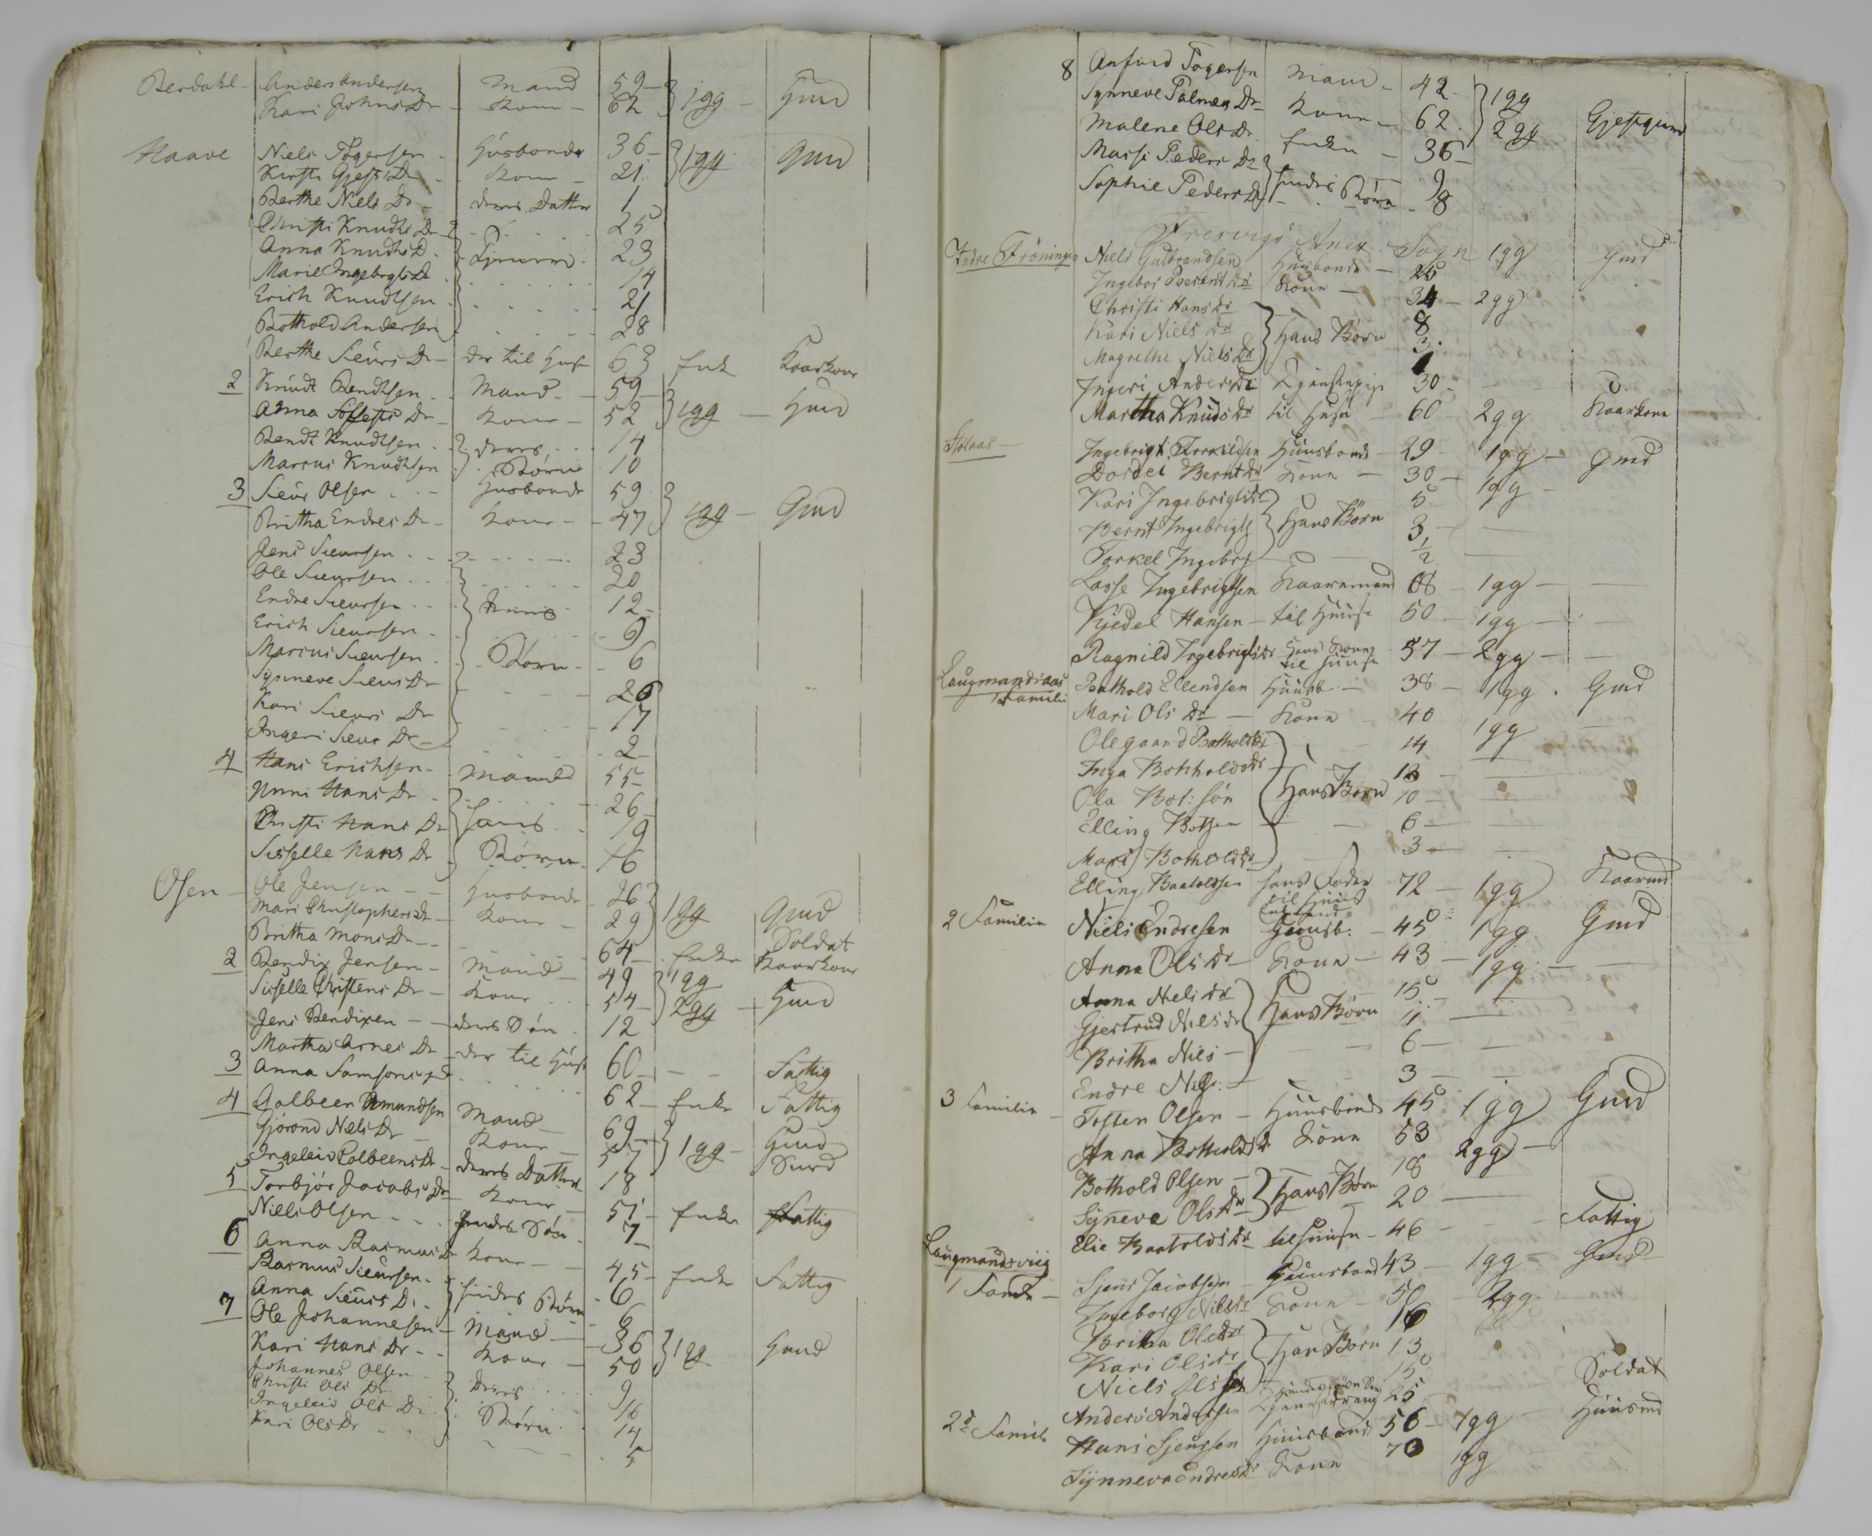 Berdahl - Anders Andersen Mand 59 1gg - Gmd
Kari Johns Dr - Kone - 62
Haave Niels Tøgersen - Husbonde 36 - 1gg Gmd
Kirsti Gjests Dr - Kone - 21
Berthe Niels Dr - deres Datter 1
Christi Knudts Dr 25
Anna Knudts D. Tjenere 23
Marie Ingebrgts D 14
Erich Knudtsen 21
Bothold Andersen 28
Berthe Sieurs Dr - der til Huse 63 Enke Kaarkone
2 Knudt Bendtsen - Mand - 59 1gg - Hmd
Anna Dr - Kone - 52
Bendt Knudtsen deres 14
Marcus Knudtsen Børn 10
3 Sieur Olsen - Husbonde 59 1gg - Gmd
Britha Endres Dr - Kone - 47
Jens Sieursen 23
Ole Sieursen 20
Endre Sieursen 12
Erich Sieursen 9
Marcus Sieursen Børn 6
Synneve Sieurs Dr 26
Kari Sieurs Dr 17
Ingeri Sieur Dr 2
4 Hans Erichsen - Mand 55
Hans Dr 26
Christi Hans Dr hans 19
Sisselle Hans Dr Børn 16
Osen - Ole Jensen - Husbonde 26 1gg Gmd
Mari Christophers Dr Kone 29 Soldat
Britha Mons Dr 64 Enke Kaarkone
2 Bendix Jensen - Mand 49 1gg
Sisselle Christens Dr - Kone 54 2gg Hmd
Jens Bendixen - deres Søn 12
Martha Arnes Dr - der til Huse 60
3 Anna Samsons D 62 - Enke Fattig
4 Colbeen Amundsen Mand 69 1gg - Huusd
Gjørond Niels Dr - Kone 57
Ingeleiv Colbeens Dr - deres Datter 18
5 Torbjør Jacobs Dr Kone 51 - Enke Fattig
Niels Olsen - hendes Søn 7
6 Anna Rasmus D Kone 45 - Enke Fattig
Rasmus Sieursen 6
Anna Sieurs D. hendes Børn 6
7 Ole Johannesen - Mand 36 1gg Huusd
Kari Hans Dr - Kone 50
Johannes Olsen 9
Christi Ols Dr deres 16
Ingeleiv Ols Dr Børn 14
Kari Ols Dr 5
8 Anfind Togersen Mand - 42 1gg
Synneve Palmes Dr Kone - 62 2gg Gjestgiver
Malene Ols Dr Enke - 36
Massi Peders Dr hendes Børn 9
Sophie Peders Dr 8
Fresvigs Anex Sogn
Indre Frøningen Niels Guldbrandsen Huusbonde - 25 1gg Gmd
Ingebor Berent Dr Kone - 34 - 2gg
Christi Hans Dr 8
Kari Niels Dr hans Børn 3
Magrethe Niels Dr 1
Ingeri Anders Dr Tjenstepige 30
Martha Knuds Dr til Huse - 60 - 2gg Kaarkone
Stølaas - Ingebrigt Torkildsen Huusbonde - 29 1gg - Gmd
Dordei Bernt Dr Kone - 30 - 1gg -
Kari Ingebrigts Dr 5
Bernt Ingebrigts hans Børn 3
Torkel Ingebr 1/2
Lasse Ingebrigtsen Kaarmand 68 - 1gg -
Kjedel Hansen - til Huuse 50 - 1gg -
Ragnild Ingebrigts Dr hans Kone til Huuse 57 - 2gg -
Laugmandsaas 1 Famili Bathold Ellendsen Huusb. - 38 - 1gg . Gmd
Mari Ols Dr - Kone 40 1gg
Olegaand Batholds Dr 14
Inga Bothholds Dr 12
Ola Bot: søn hans Børn 10
Elling Botsen 6
Mari Botholds Dr 3
Elling Baatoldsen hans Fader til Huus 72 - 1gg Kaarmd
2 Familie Niels Endresen Huusb. - 45 1gg Gmd
Anna Ols Dr - Kone - 43 - 1gg -
Anna Niels Dr 15
Gjertrud Nils Dr hans Børn 11
Britha Nils - 6
Endre Nils: - 3
3 Familie - Tosten Olsen - Huusbonde 45 1gg Gmd
Anna Botholds Dr Kone 53 2gg -
Bothold Olsen - 18
Synneve Ols Dr hans Børn 20
Elie Baatolds Dr til Huuse - 46 - Fattig
Laugmandsviig 1 Famil - Sjens Jacobsen - Huusbond 43 - 1gg - Gmd
Ingeborg Nils Dr Kone - 50 - 2gg
Britha Ols Dr 16
Kari Ols Dr hans Børn 13
Niels Olsen 15
Anders Andersen 25 Soldat
2d Famili Hans Sjensen Huusbond 56 - 1gg - Huusmd
Synneva Endres Dr Kone 70 1gg